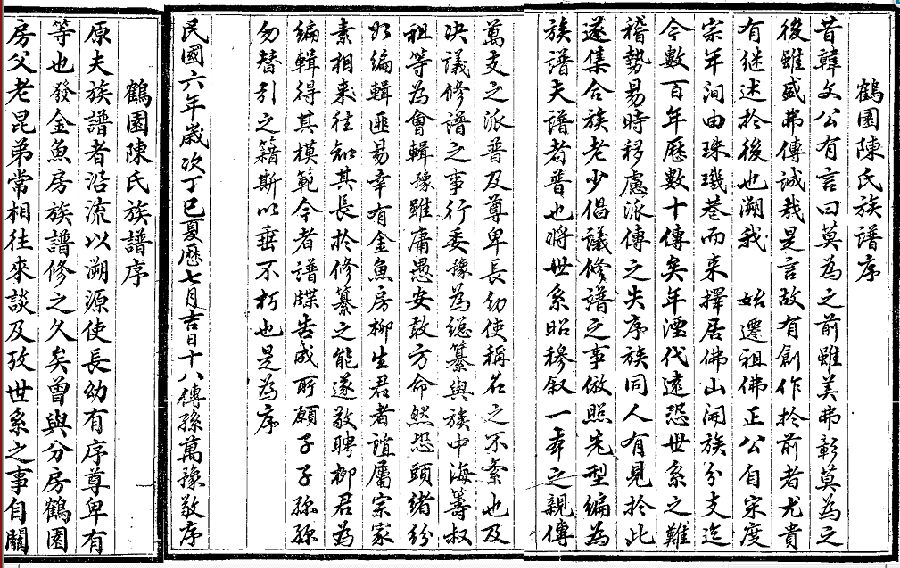 鶴園陳氏族譜序
昔韓文公有言曰莫為之前雖美弗彰莫為之
後雖盛弗傳誠哉是言故有創作於前者尤貴
有継述於後也溯我 始遷祖佛正公自宋度
宗年间由珠璣巷而来擇居佛山開族分支迄
今數百年歷數十傳矣年湮代遠恐世系之難
稽勢易時移慮派傳之失序族同人有見於此
遂集合族老少倡議修譜之事倣照先型編為
族譜夫譜者普也將世系昭穆叙一本之親傳
萬支之派普及尊卑長幼使稱名之不紊也及
决議修譜之事行委豫為總纂與族中海籌叔
祖等為會輯豫雖庸愚安敢方命然恐頭緒紛
如編輯匪易幸有金魚房柳生君者誼屬宗家
素相来往知其長於修纂之能遂敬聘柳君為
編輯得其模範今者譜牒告成所願子子孫孫
勿替引之籍斯以垂不朽也是為序
民國六年歲次丁巳夏曆七月吉日十八傳孫萬豫敬序
鶴園陳氏族譜序
原夫族譜者沿流以溯源使長幼有序尊卑有
等也發金魚房族譜修之久矣曾與分房鶴園
房父老昆弟常相往來談及攷世系之事自關